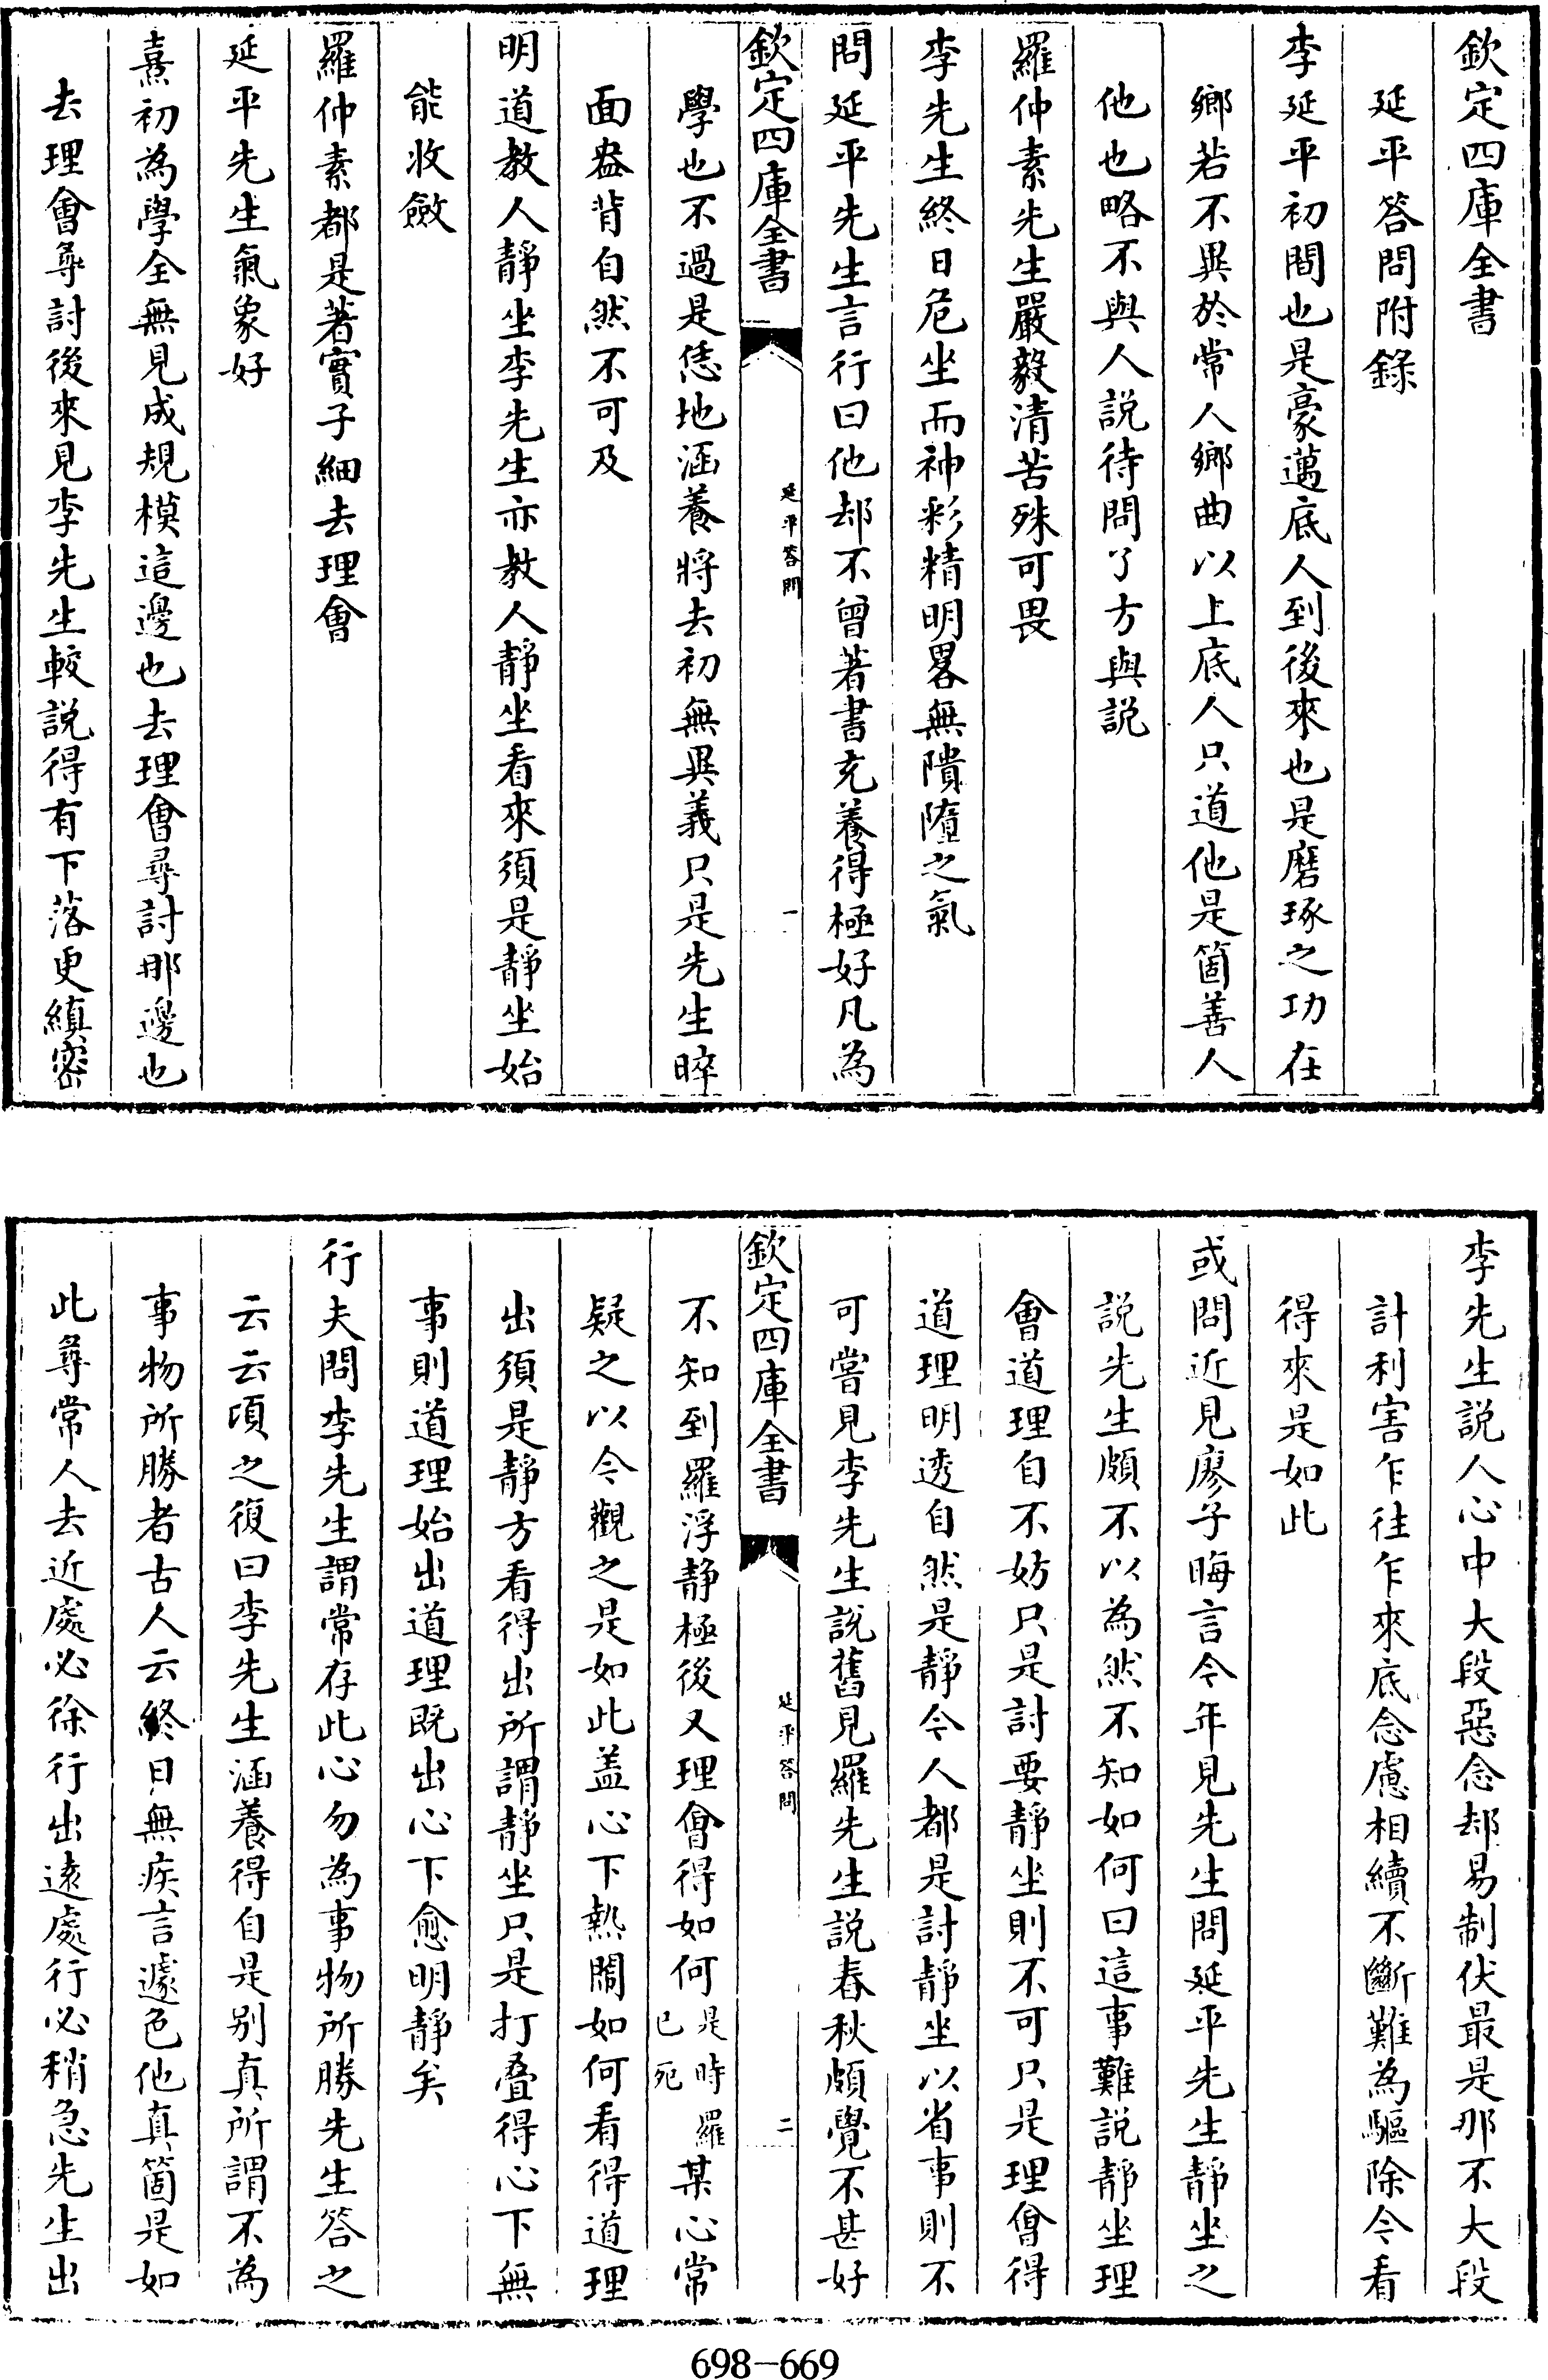 欽定四庫全書
延平答問附錄
李延平初間也是豪邁底人到後來也是磨琢之功在
鄉若不異於常人鄉曲以上底人只道他是箇善人
他也略不與人説待問了方與説
羅仲素先生嚴毅清苦殊可畏
李先生終日危坐而神彩精明畧無隤墮之氣
問延平先生言行曰他却不曾著書充養得極好凡為
欽定四庫全書
延平答問
一
學也不過是恁地涵養將去初無異義只是先生晬
面盎背自然不可及
明道教人靜坐李先生亦教人靜坐看來須是靜坐始
能收斂
羅仲素都是著實子細去理會
延平先生氣象好
熹初為學全無見成規模這邊也去理會尋討那邊也
去理會尋討後來見李先生較説得有下落更縝密
李先生説人心中大段惡念却易制伏最是那不大段
計利害乍往乍來底念慮相續不斷難為驅除今看
得來是如此
或問近見廖子晦言今年見先生問延平先生靜坐之
説先生頗不以為然不知如何曰這事難説靜坐理
會道理自不妨只是討要靜坐則不可只是理會得
道理明透自然是靜今人都是討靜坐以省事則不
可嘗見李先生説舊見羅先生説春秋頗覺不甚好
欽定四庫全書
延平答問
二
不知到羅浮静極後又理會得如何是時羅已死某心常
疑之以今觀之是如此盖心下熱鬧如何看得道理
出須是靜方看得出所謂靜坐只是打疊得心下無
事則道理始出道理既出心下愈明靜矣
行夫問李先生謂常存此心勿為事物所勝先生答之
云云頃之復曰李先生涵養得自是别真所謂不為
事物所勝者古人云終日無疾言遽色他真箇是如
此尋常人去近處必徐行出遠處行必稍急先生出
698-669